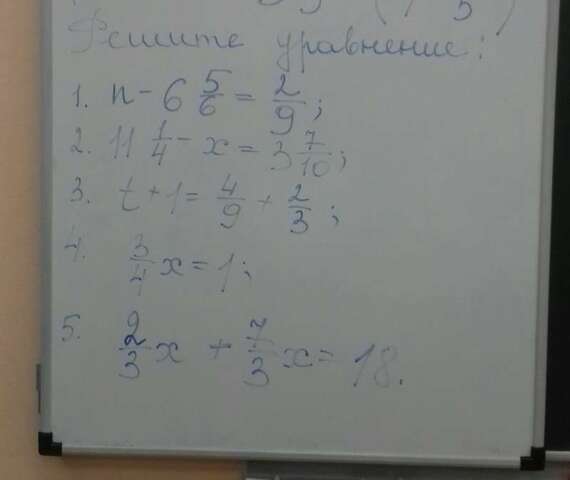 Решите уравнение:
1. n - 6 5/6 = 2/9;
2. 11 1/4 - x = 3 7/10;
3. t + 1 = 4/9 + 2/3;
4. 3/4 x = 1;
5. 2/3 x + 7/3 x = 18.